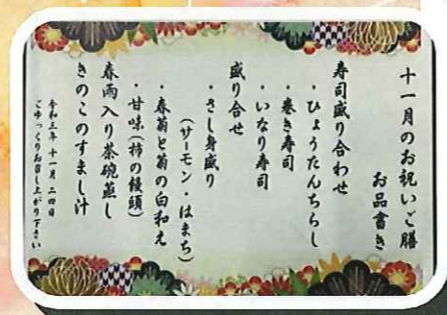 十一月のお祝いご膳
お品書き
寿司盛り合わせ
・ひょうたんちらし
・巻き寿司
・いなり寿司
盛り合せ
・さし身盛り
(サーモン・はまち)
・春菊と菊の白和え
・甘味(柿の饅頭)
春雨入り茶碗蒸し
きのこのすまし汁
令和三年十一月二四日
ごゆっくりお召し上がり下さい